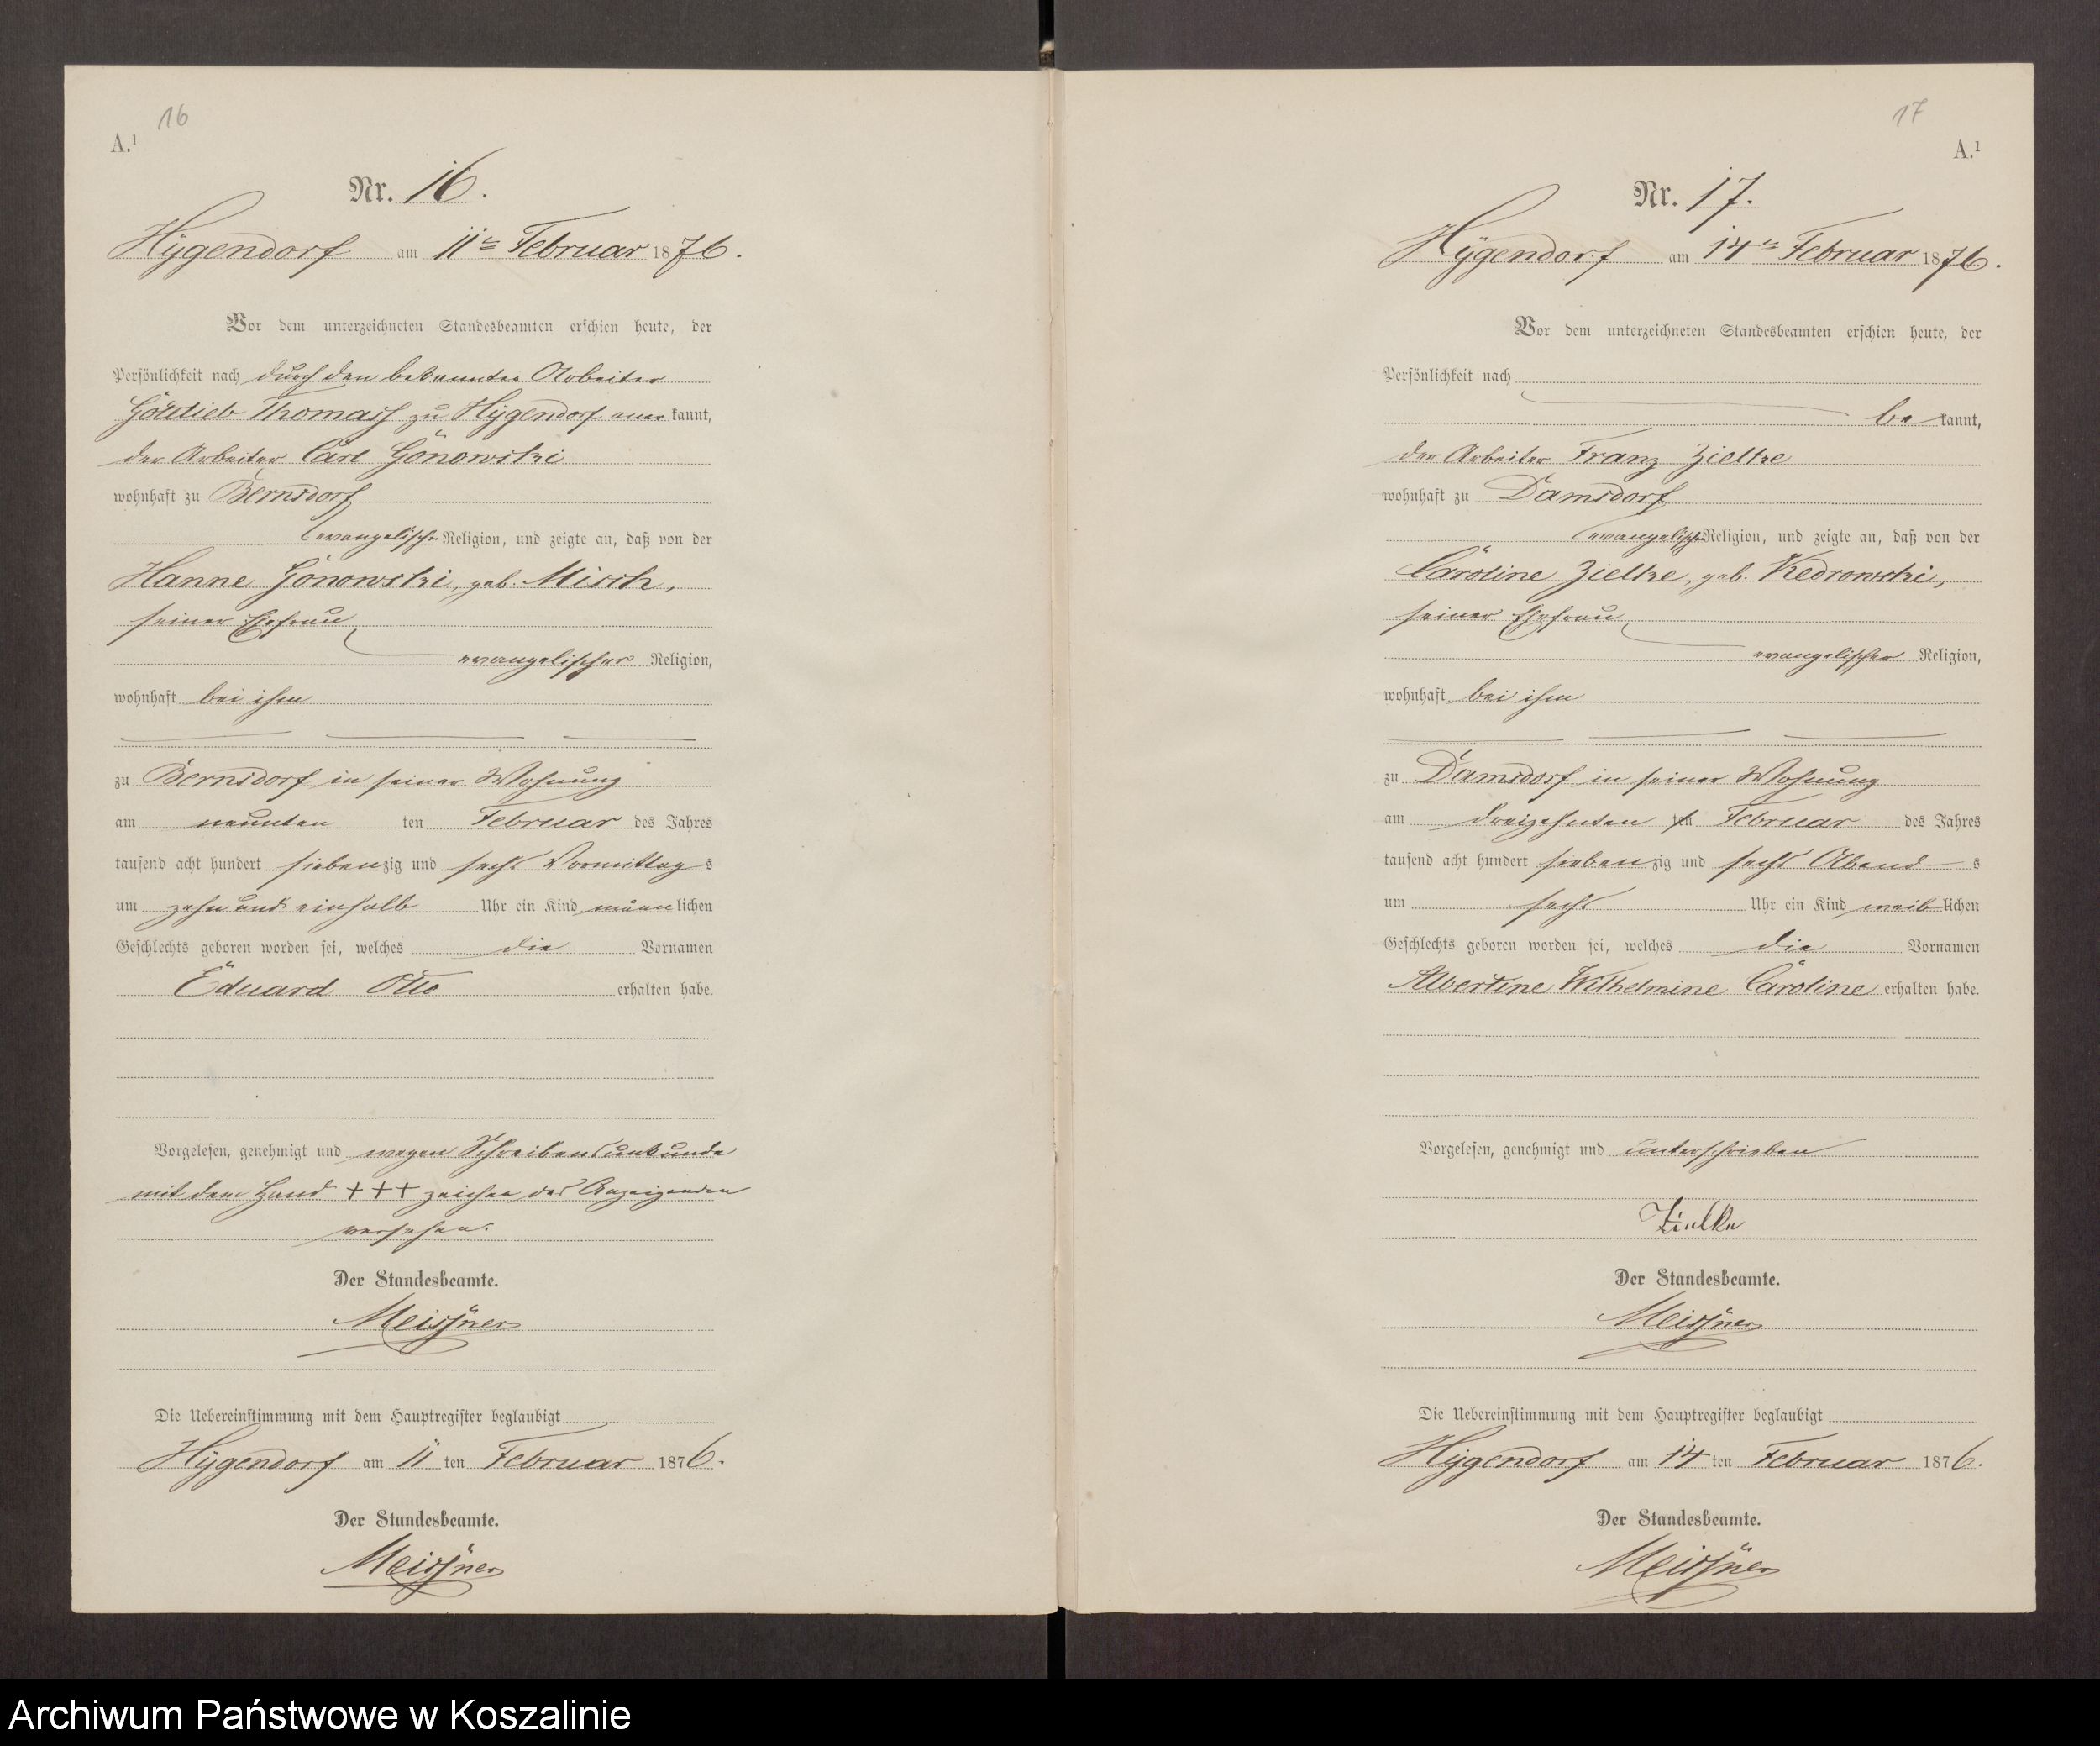 16
A.¹
Nr. 16.
Hygendorf am 11ten Februar 1876.
Vor dem unterzeichneten Standesbeamten erschien heute, der
Persönlichkeit nach durch den bekannten Arbeiter
Gottlieb Thomass zu Hygendorf aner kannt,
der Arbeiter Carl Gonowski
wohnhaft zu Bernsdorf
evangelischer Religion, und zeigte an, daß von der
Hanne Gonowski, geb. Misch,
seiner Ehefrau
evangelischer Religion,
wohnhaft bei ihm
zu Bernsdorf in seiner Wohnung
am neunten ten Februar des Jahres
tausend acht hundert siebenzig und sechs Vormittags
um zehn und einhalb Uhr ein Kind männlichen
Geschlechts geboren worden sei, welches die Vornamen
Eduard Otto erhalten habe.
Vorgelesen, genehmigt und wegen Schreibensunkunde
mit dem Hand +++ zeichen des Anzeigenden
versehen.
Der Standesbeamte.
Meissner
Die Uebereinstimmung mit dem Hauptregister beglaubigt
Hygendorf am 11 ten Februar 1876.
Der Standesbeamte.
Meissner
17
A.¹
Nr. 17.
Hygendorf am 14ten Februar 1876.
Vor dem unterzeichneten Standesbeamten erschien heute, der
Persönlichkeit nach
be kannt,
der Arbeiter Franz Zielke
wohnhaft zu Damsdorf
evangelischer Religion, und zeigte an, daß von der
Caroline Zielke, geb. Kedrowski,
seiner Ehefrau
evangelischer Religion,
wohnhaft bei ihm
zu Damsdorf in seiner Wohnung
am dreizehnten ten Februar des Jahres
tausend acht hundert siebenzig und sechs Abends
um sechs Uhr ein Kind weiblichen
Geschlechts geboren worden sei, welches die Vornamen
Albertine Wilhelmine Caroline erhalten habe.
Vorgelesen, genehmigt und unterschrieben
Zielke
Der Standesbeamte.
Meissner
Die Uebereinstimmung mit dem Hauptregister beglaubigt
Hygendorf am 14 ten Februar 1876.
Der Standesbeamte.
Meissner
Archiwum Państwowe w Koszalinie